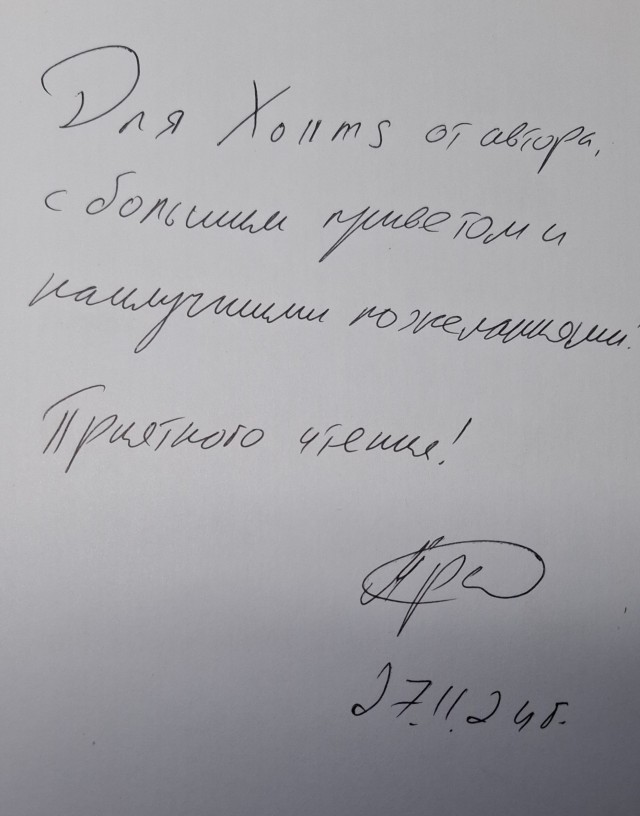 Для от автора,
с большим приветом и
наилучшими пожеланиями!
Приятного чтения!
27.11.24г.